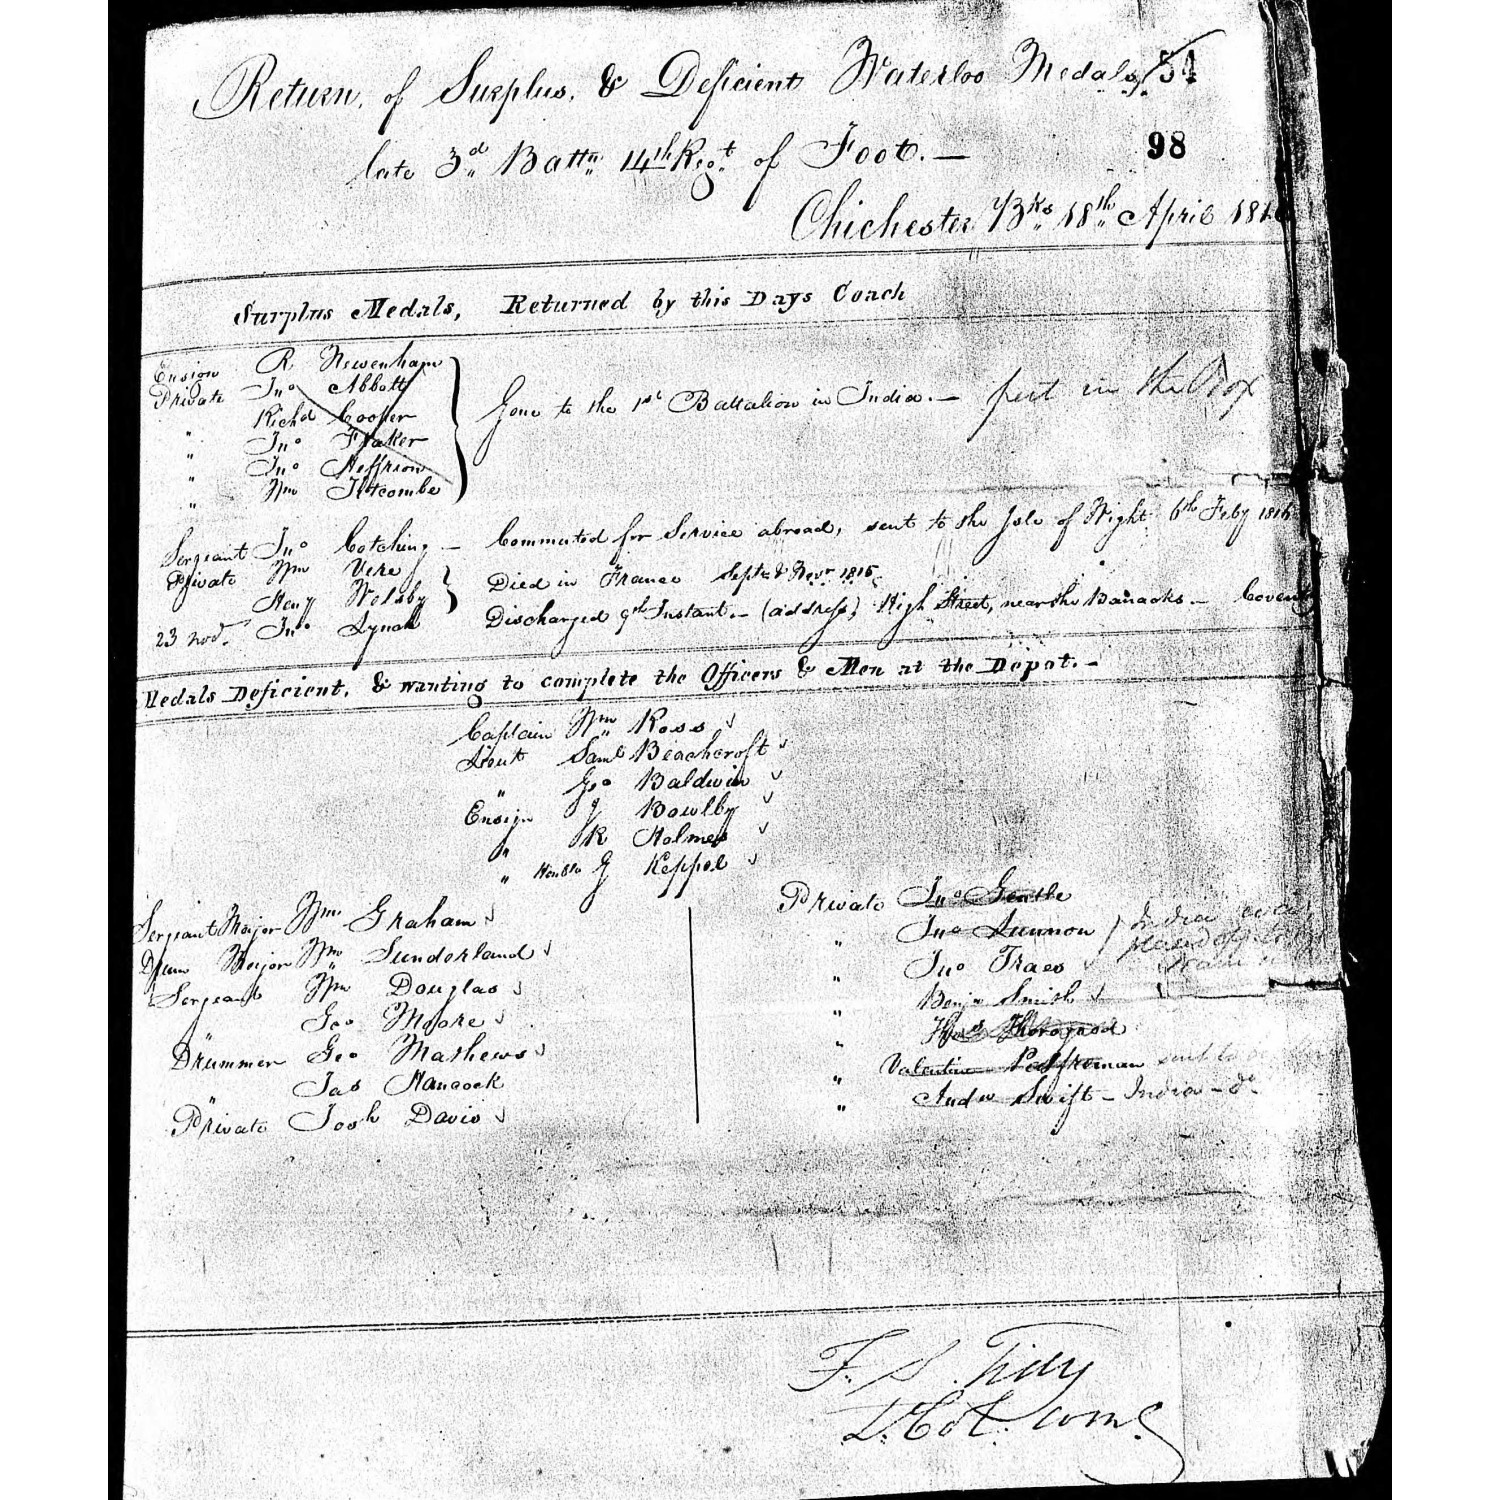 Return of Surplus & Deficient Waterloo Medals 54
late 3d Battn 14th Regt of Foot. — 98
Chichester Bks 18th April 1816
Surplus Medals, Returned by this Days Coach
Ensign R Newenham
Private Jno Abbott
" Richd Cooper
" Jno Fraker
" Jno Heffrion
" Wm Titcombe
Gone to the 1st Battalion in India. — put in the Box
Sergeant Jno Cotching — Commuted for Service abroad, sent to the Isle of Wight 6th Feby 1816
Private Wm Vere
Heny Welsby
Died in France Septr & Novr 1815
23 nod. Jno Lynch Discharged 9th Instant. — (address) High Street, near the Barracks — Coventry
Medals Deficient, & wanting to complete the Officers & Men at the Depot. —
Captain Wm Ross
Lieut Saml Beachcroft
" Geo Baldwin
Ensign J Bowlby
" R Holmes
" Honble G Keppel
Sergeant Major Wm Graham
Drum Major Wm Sunderland
Sergeant Wm Douglas
" Geo Moore
Drummer Geo Mathews
" Jas Hancock
Private Josh Davis
Private Jno Gentle
" Jno Lunnon India
" Jno Traes
" Benjn Smith
" Thos Thorogood
" Valentine sent to
" Andw Swift — India — do
F. S. Tidy
Lt. Col. Comg